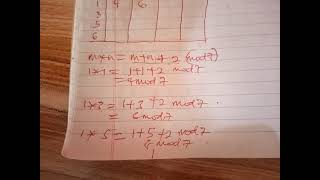 1 4 6
3
5
6
m*n = m+n+2 (mod 7)
1*1 = 1+1+2 mod 7
= 4 mod 7
1*3 = 1+3+2 mod 7
= 6 mod 7
1*5 = 1+5+2 mod 7
mod 7